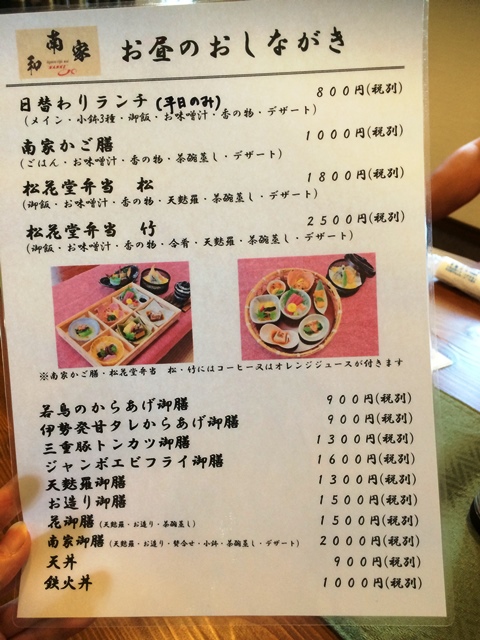 南家
和
お昼のおしながき
日替わりランチ (平日のみ) 800円(税別)
(メイン・小鉢3種・御飯・お味噌汁・香の物・デザート)
南家かご膳 1000円(税別)
(ごはん・お味噌汁・香の物・茶碗蒸し・デザート)
松花堂弁当 松 1800円(税別)
(御飯・お味噌汁・香の物・天麩羅・茶碗蒸し・デザート)
松花堂弁当 竹 2500円(税別)
(御飯・お味噌汁・香の物・合肴・天麩羅・茶碗蒸し・デザート)
※南家かご膳・松花堂弁当 松・竹にはコーヒー又はオレンジジュースが付きます
若鳥のからあげ御膳 900円(税別)
伊勢発甘タレからあげ御膳 900円(税別)
三重豚トンカツ御膳 1300円(税別)
ジャンボエビフライ御膳 1600円(税別)
天麩羅御膳 1300円(税別)
お造り御膳 1500円(税別)
花御膳 (天麩羅・お造り・茶碗蒸し) 1500円(税別)
南家御膳 (天麩羅・お造り・焚合せ・小鉢・茶碗蒸し・デザート) 2000円(税別)
天丼 900円(税別)
鉄火丼 1000円(税別)